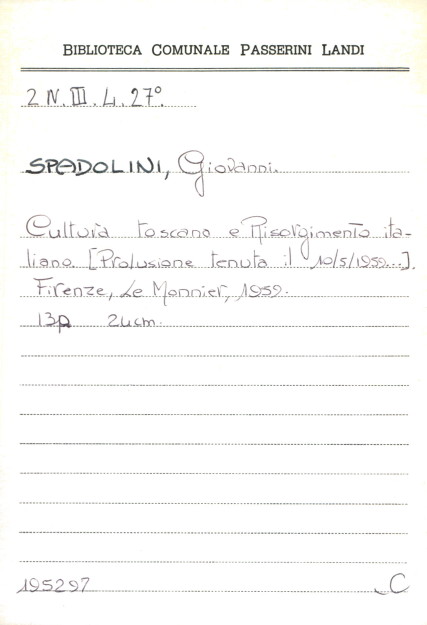 BIBLIOTECA COMUNALE PASSERINI LANDI
2 N. III. L. 27°.
SPADOLINI, Giovanni.
Cultura toscana e Risorgimento ita-
liano. [Prolusione tenuta il 10/5/1959...].
Firenze, Le Monnier, 1959.
13p 24cm.
195297 C